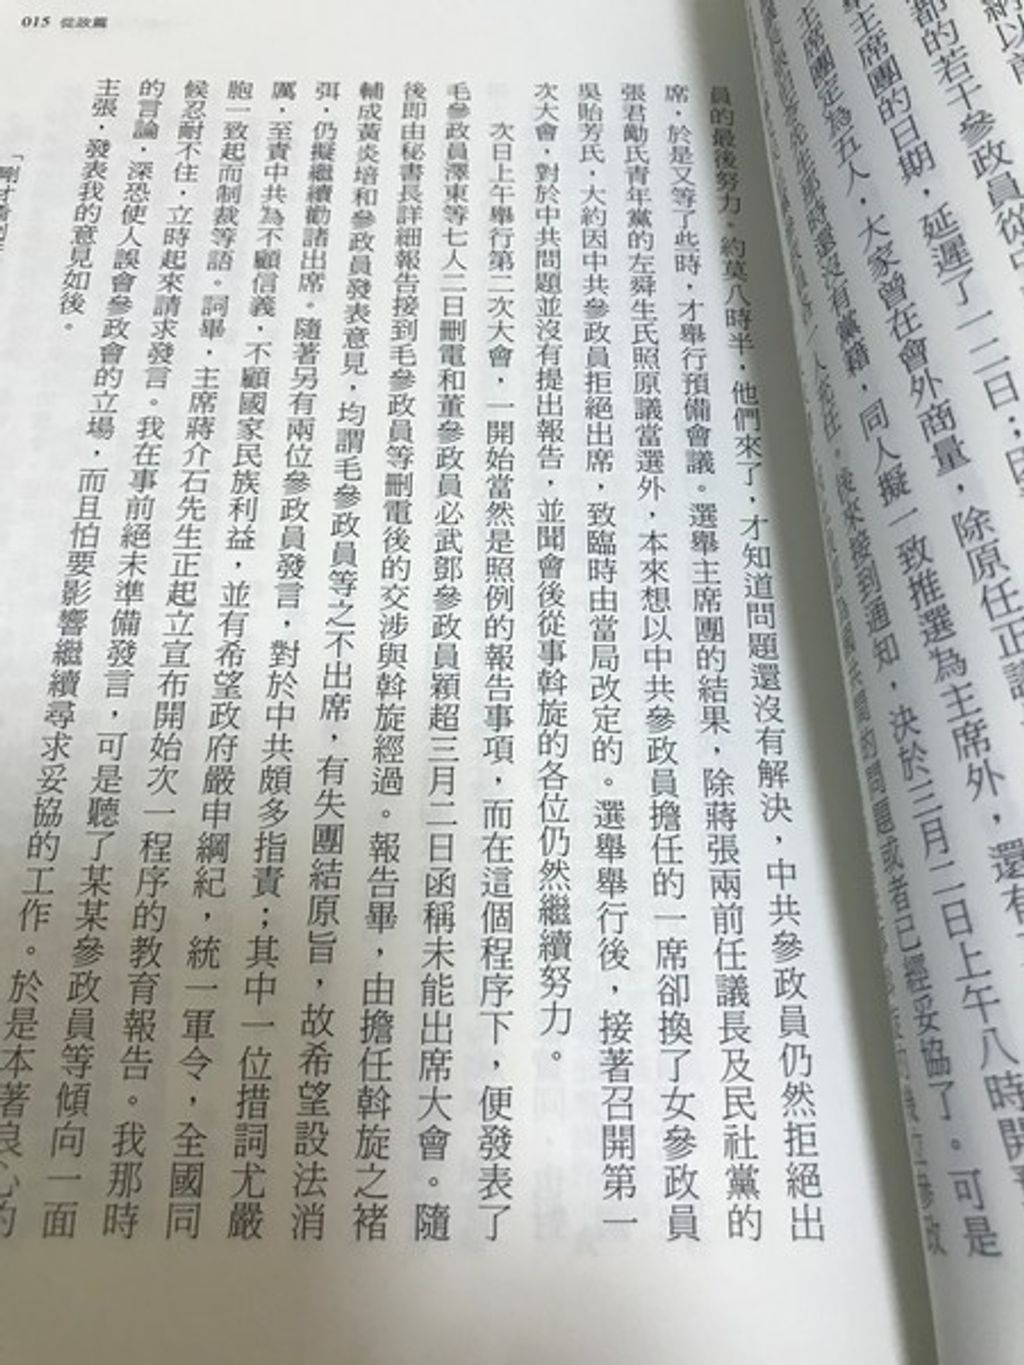 015 從政篇
納以前
都的若干參政員從中
主席團的日期，延遲了一二日；因
主席團定為五人，大家曾在會外商量，除原任正議
還沒有黨籍，同人擬一致推選為主席外，還有
人充任。後來接到通知，決於三月二日上午八時開
的問題或者已經妥協了。可是
員的最後努力。約莫八時半，他們來了，才知道問題還沒有解決，中共參政員仍然拒絕出
席，於是又等了些時，才舉行預備會議。選舉主席團的結果，除蔣張兩前任議長及民社黨的
張君勱氏青年黨的左舜生氏照原議當選外，本來想以中共參政員擔任的一席卻換了女參政員
吳貽芳氏，大約因中共參政員拒絕出席，致臨時由當局改定的。選舉舉行後，接著召開第一
次大會，對於中共問題並沒有提出報告，並聞會後從事斡旋的各位仍然繼續努力。
次日上午舉行第二次大會，一開始當然是照例的報告事項，而在這個程序下，便發表了
毛參政員澤東等七人二日刪電和董參政員必武鄧參政員穎超三月二日函稱未能出席大會。隨
後即由秘書長詳細報告接到毛參政員等刪電後的交涉與斡旋經過。報告畢，由擔任斡旋之褚
輔成黃炎培和參政員發表意見，均謂毛參政員等之不出席，有失團結原旨，故希望設法消
弭，仍擬繼續勸諸出席。隨著另有兩位參政員發言，對於中共頗多指責；其中一位措詞尤嚴
厲，至責中共為不顧信義，不顧國家民族利益，並有希望政府嚴申綱紀，統一軍令，全國同
胞一致起而制裁等語。詞畢，主席蔣介石先生正起立宣布開始次一程序的教育報告。我那時
候忍耐不住，立時起來請求發言。我在事前絕未準備發言，可是聽了某某參政員等傾向一面
的言論，深恐使人誤會參政會的立場，而且怕要影響繼續尋求妥協的工作。於是本著良心的
主張，發表我的意見如後。
「剛才